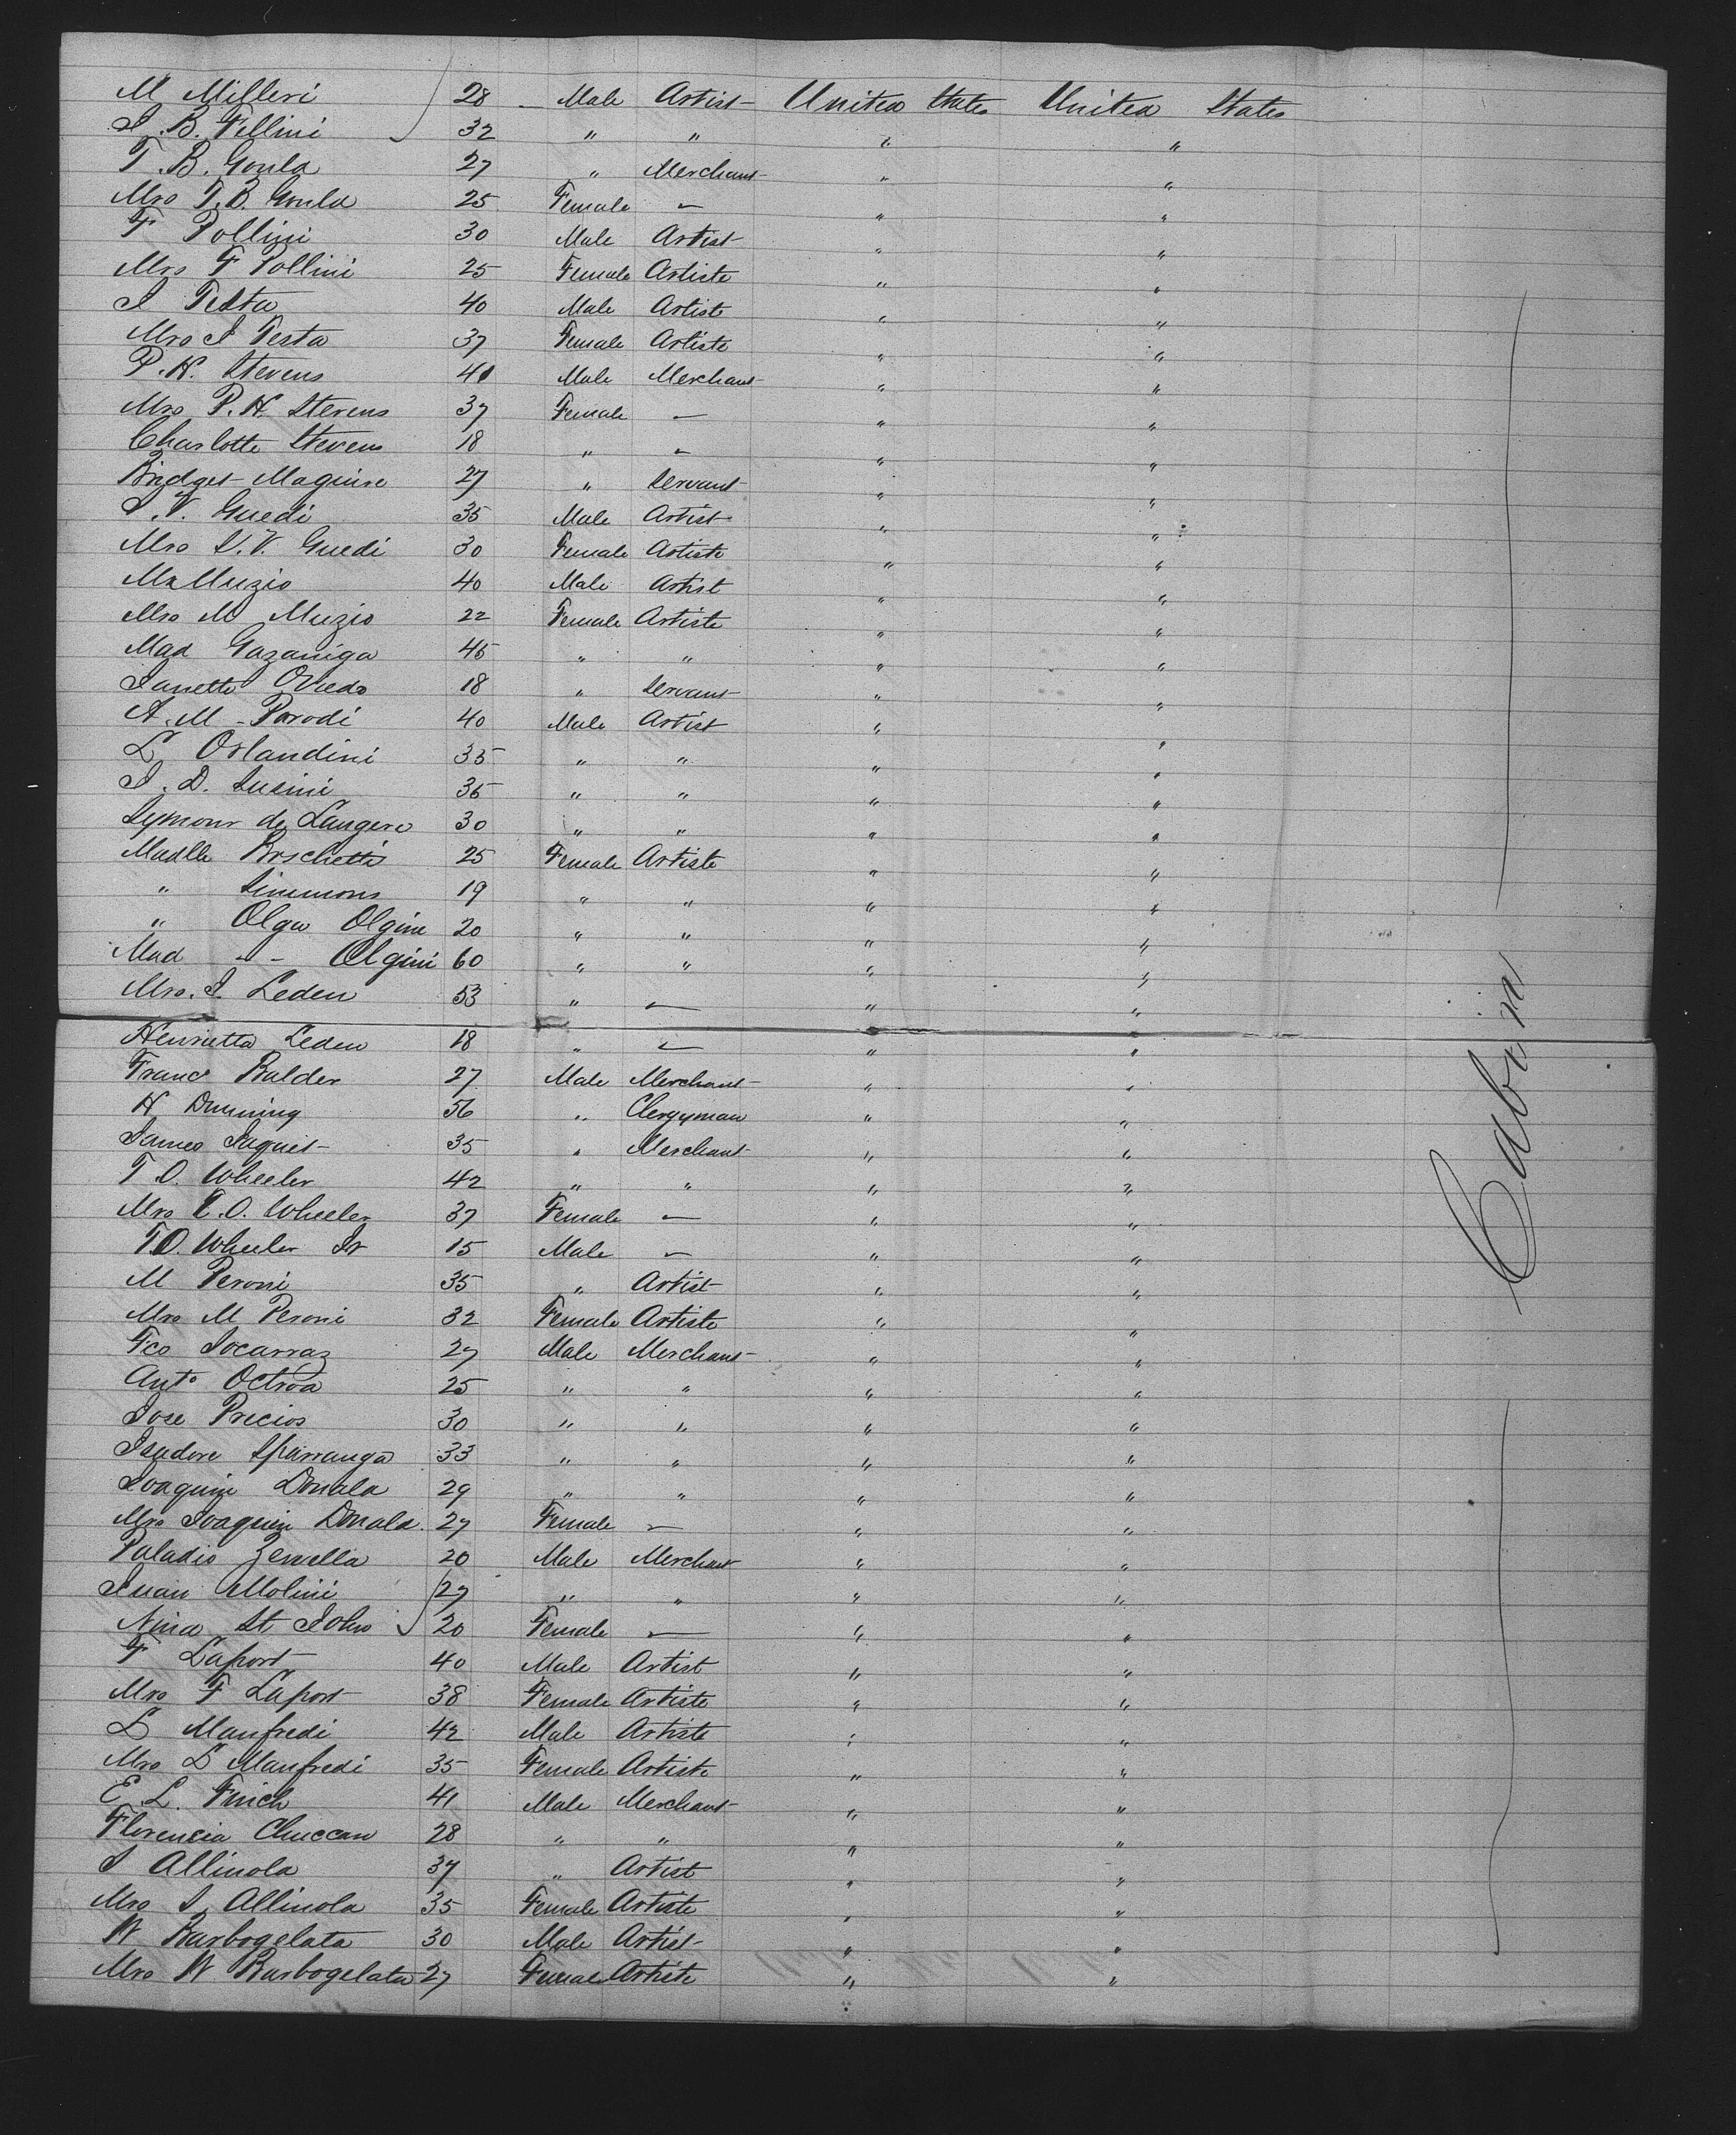 M Milleri 28 - Male Artist United States United States
I. B. Fellini 32 " " " "
T. B. Gould 27 " Merchant " "
Mrs T. B. Gould 25 Female — " "
F Pollini 30 Male Artist " "
Mrs F Pollini 25 Female Artiste " "
I Testa 40 Male Artist " "
Mrs I Testa 37 Female Artiste " "
P. H. Stevens 41 Male Merchant " "
Mrs P. H. Stevens 37 Female — " "
Charlotte Stevens 18 " — " "
Bridget Maguire 27 " Servant " "
S. V. Guedi 35 Male Artist " "
Mrs S. V. Guedi 30 Female Artiste " "
M Muzio 40 Male Artist " "
Mrs M Muzio 22 Female Artiste " "
Mad Gazaniga 45 " " " "
Janette Oviedo 18 " Servant " "
A. M - Parodi 40 Male Artist " "
L Orlandini 35 " " " "
I. D. Susini 35 " " " "
Symour de Langere 30 " " " "
Madlle Boschetti 25 Female Artiste " "
" Simmons 19 " " " "
" Olga Olgini 20 " " " "
Mad - - Olgini 60 " " " "
Mrs. I. Leden 53 " — " "
Henrietta Leden 18 " — " "
Franc Balder 27 Male Merchant " "
H Dunning 56 " Clergyman " "
James Jaques 35 " Merchant " "
T O. Wheeler 42 " " " "
Mrs T. O. Wheeler 37 Female — " "
T. O. Wheeler Jr 15 Male — " "
M Peroni 35 " Artist " "
Mrs M Peroni 32 Female Artiste " "
Fco Socarraz 27 Male Merchant " "
Anto Octroa 25 " " " "
Jose Precios 30 " " " "
Isadore Sparranga 33 " " " "
Joaquin Donala 29 " " " "
Mrs Joaquin Donala. 27 Female — " "
Paladio Zervella 20 Male Merchant " "
Juan Molini 27 " " " "
Nina St John 20 Female — " "
F Laport 40 Male Artist " "
Mrs F Laport 38 Female Artiste " "
L Manfredi 42 Male Artiste " "
Mrs L Manfredi 35 Female Artiste " "
E. L. Finch 41 Male Merchant " "
Florencia Chuccan 28 " " " "
I Allinola 37 " Artist " "
Mrs I. Allinola 35 Female Artiste " "
W Barbogelata 30 Male Artist " "
Mrs W Barbogelata 27 Female Artiste " "
Cabin